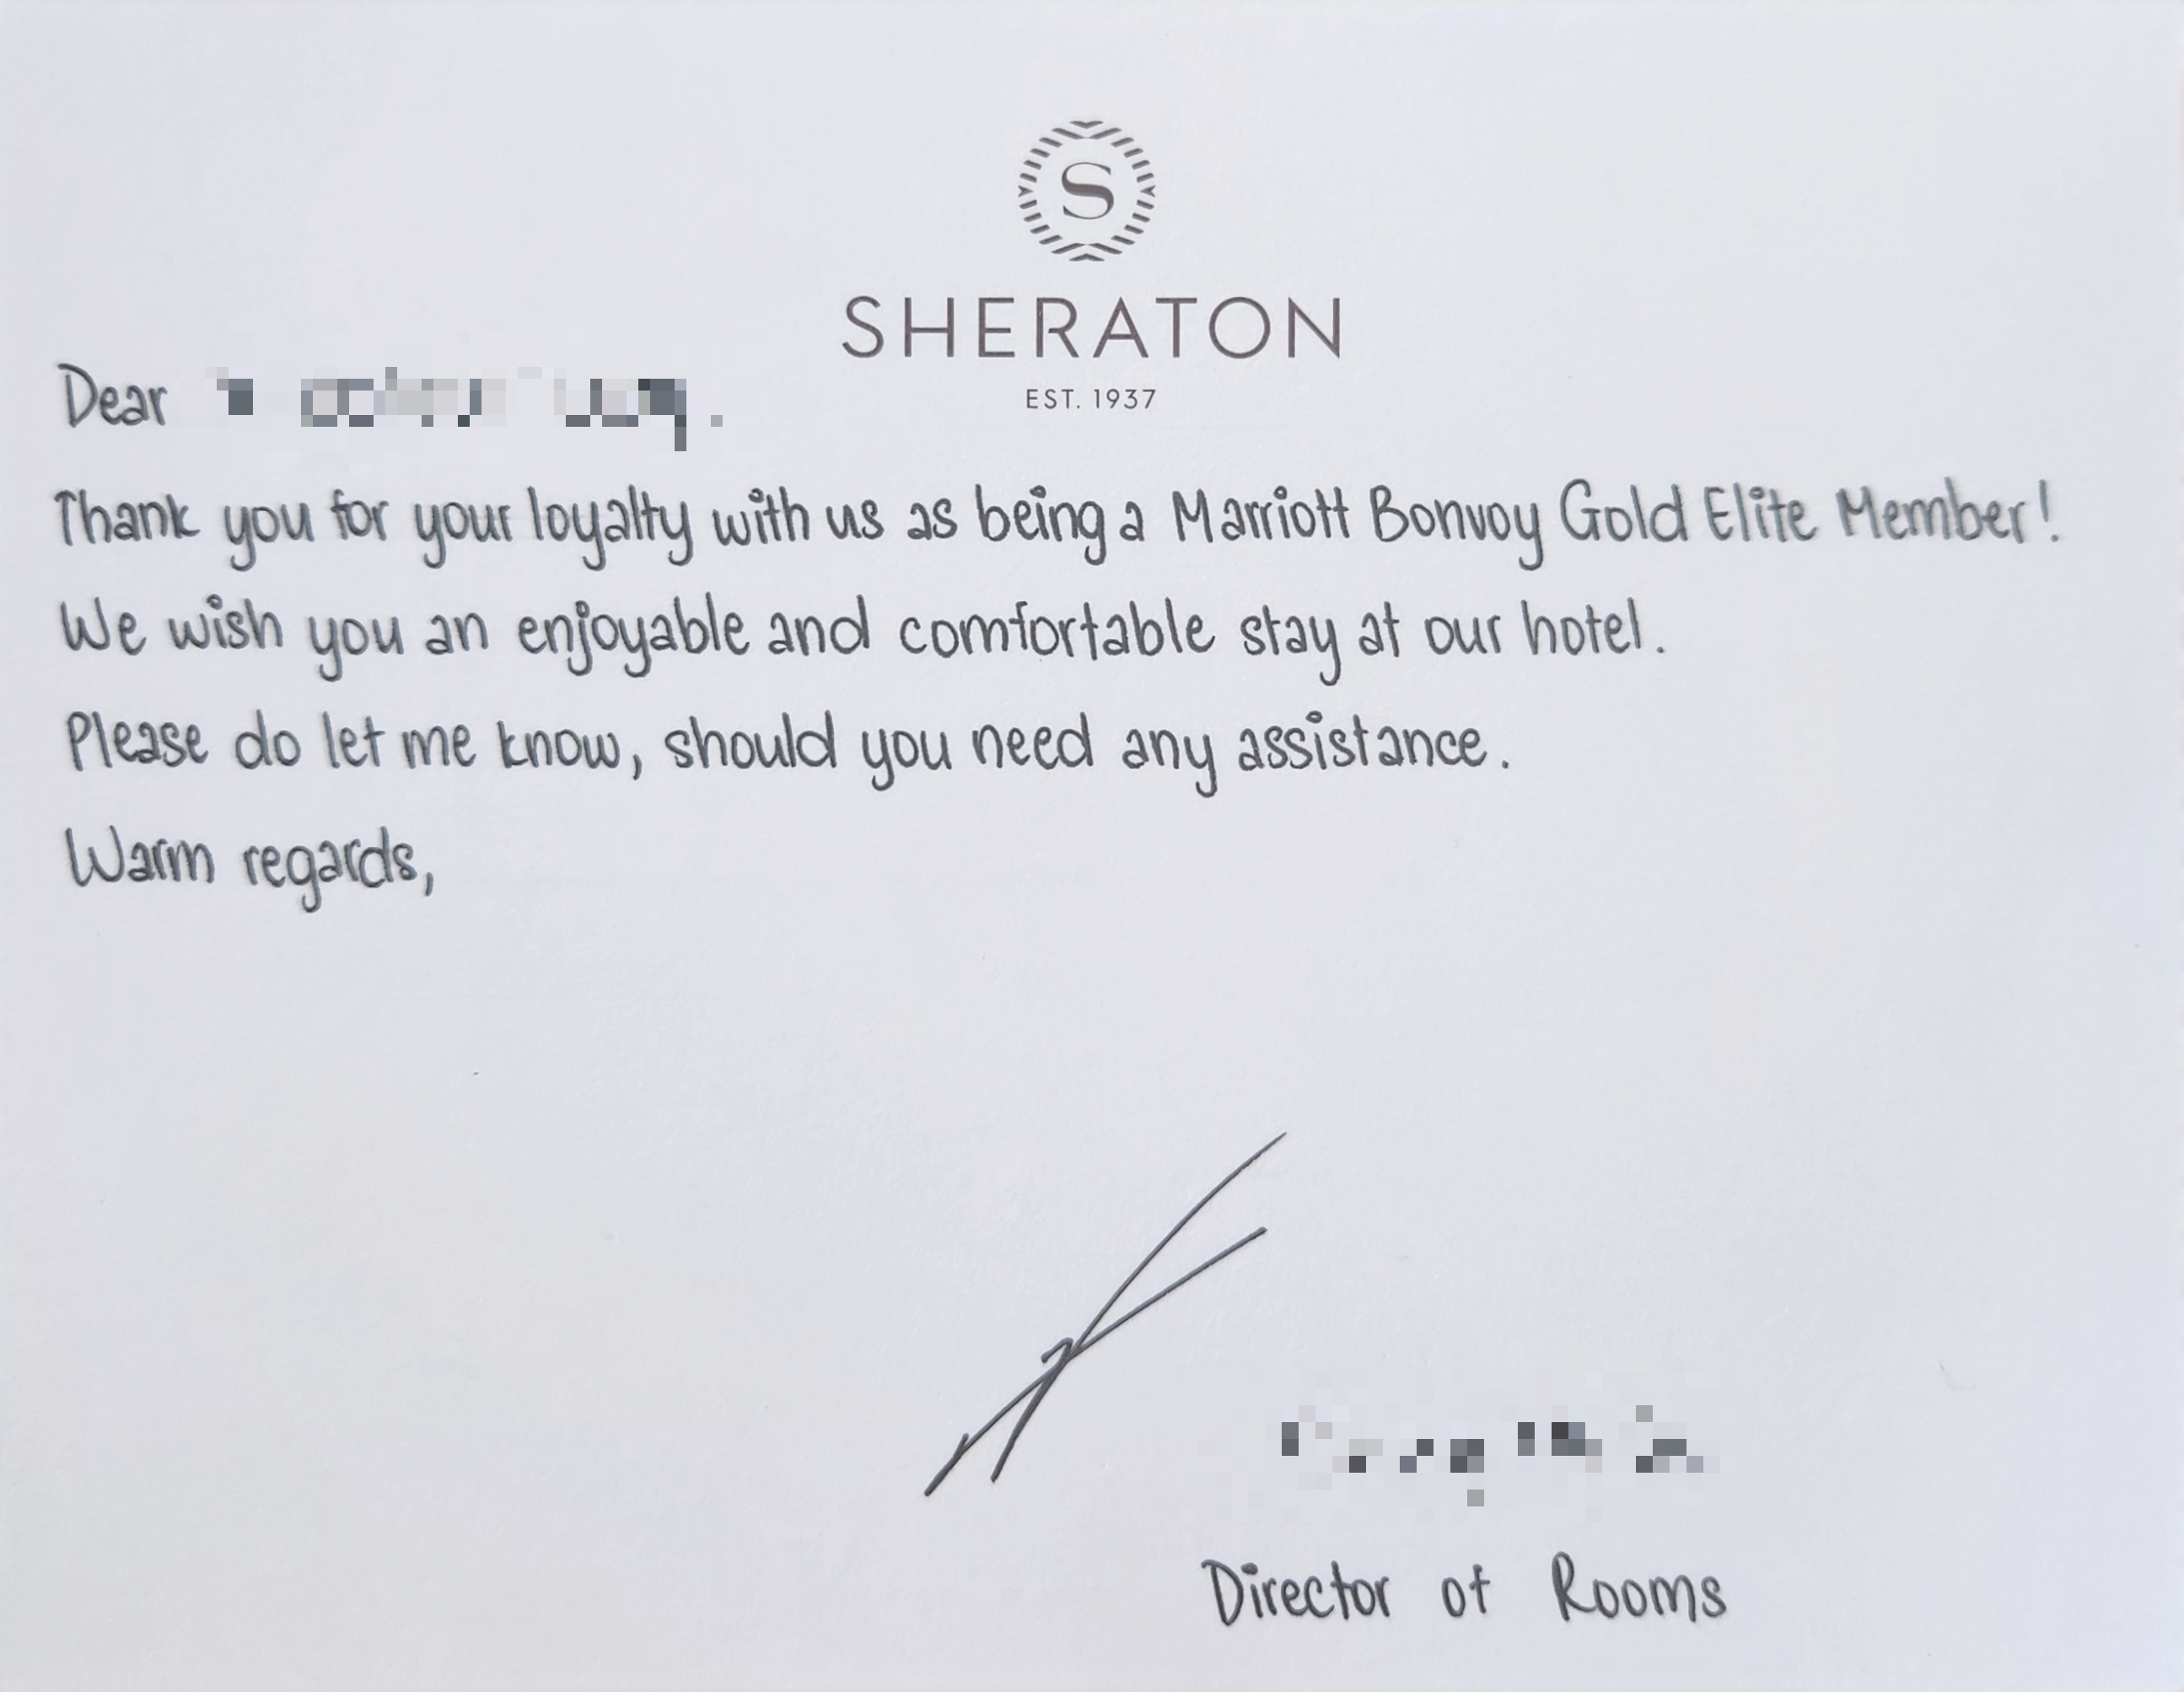 S
SHERATON
EST. 1937
Dear
Thank you for your loyalty with us as being a Marriott Bonvoy Gold Elite Member!
We wish you an enjoyable and comfortable stay at our hotel.
Please do let me know, should you need any assistance.
Warm regards,
Director of Rooms